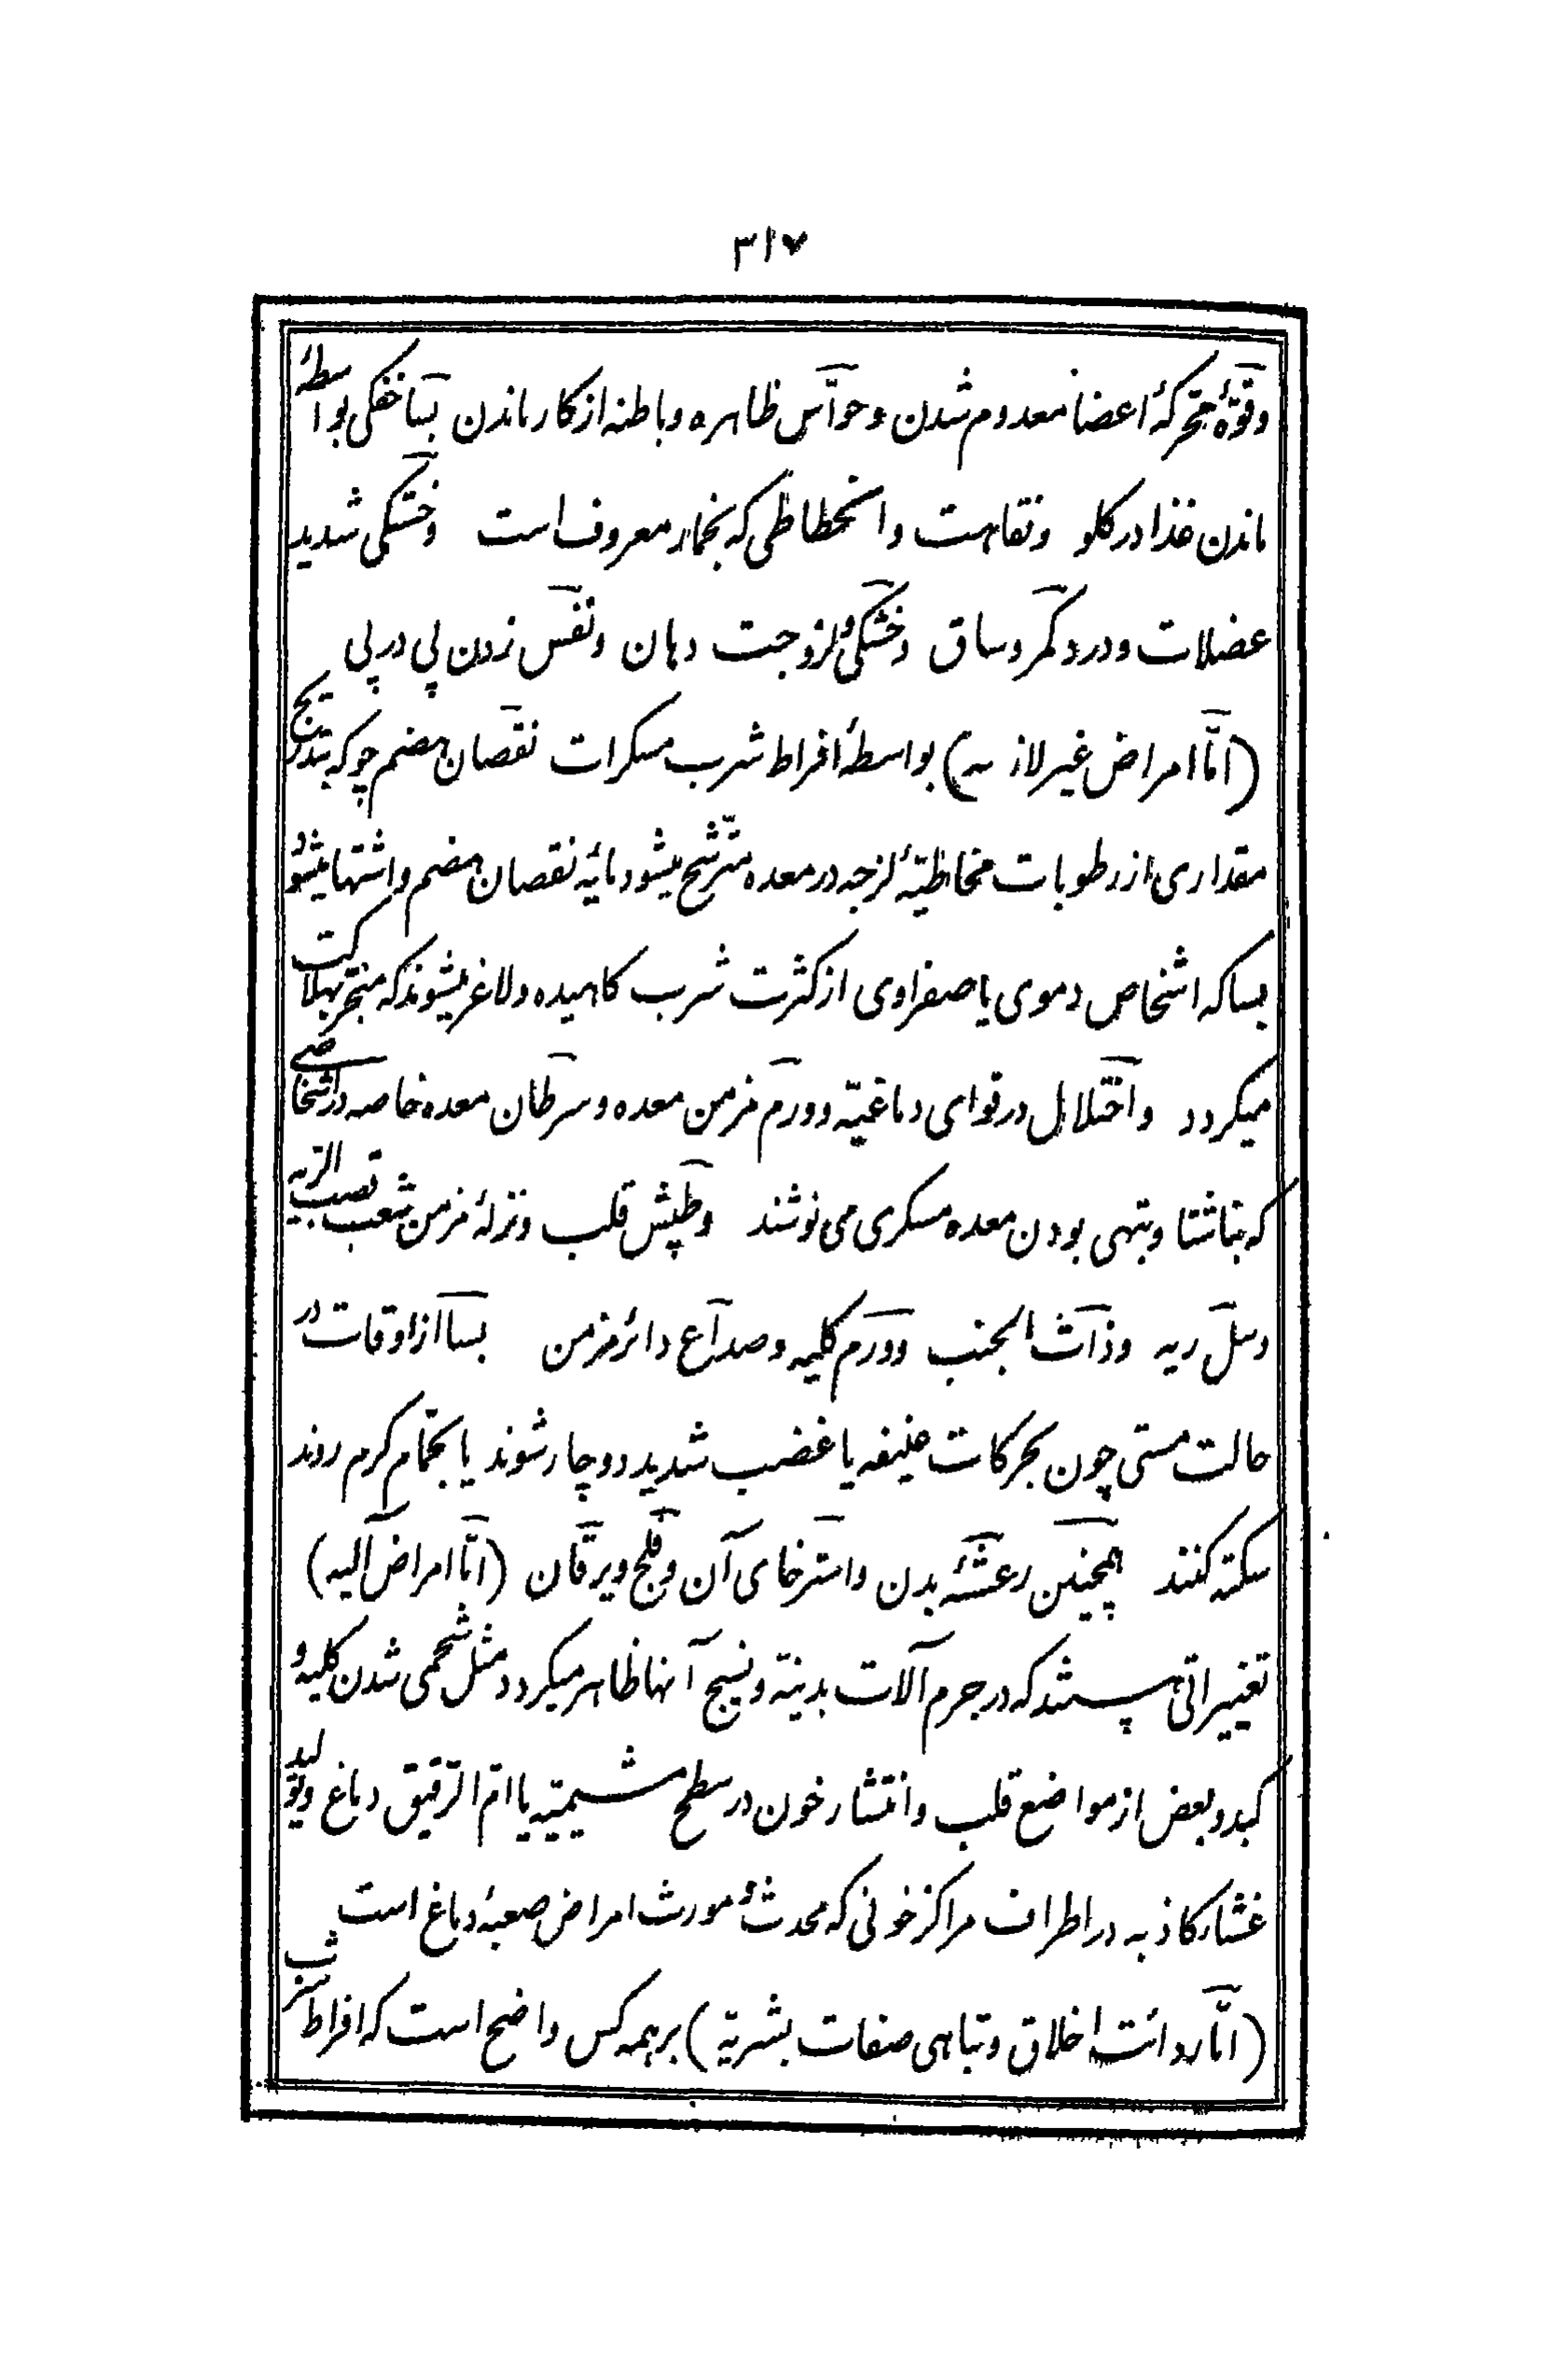 ۳۱۷
وقوّهٔ متحرکهٔ اعضا معدوم شدن و حواّس ظاهره و باطنه از کار ماندن بسا خفکی بواسطهٔ
ماندن غذا در کلو و نقاهت و انحطاطی که بخمار معروف است و خشکی شدید
عضلات و درد کمر و ساق و خشکی و لزوجت دهان و نفس زدن پی در پی
(امّا امراض غیر لازمه) بواسطهٔ افراط شرب مسکرات نقصان هضم چو که بتدریج
مقداری از رطوبات مخاطیّهٔ لزجه در معده مترّشح میشود مایهٔ نقصان هضم و اشتها میشود
بسا که اشخاص دموی یا صفراوی از کثرت شرب کاهیده و لاغر میشوند که منجر بهلاکت
میکردد و اختلال در قوای دماغیّه و ورم مزمن معده و سرطان معده خاصه در اشخاصی
که بناشتا و بتهی بودن معده مسکری می نوشند و طپش قلب و نزلهٔ مزمن شعب قصب الریه
و سل ریه و ذات الجنب و ورم کلیه و صداع دائر مزمن بسا از اوقات در
حالت مستی چون بحرکات عنیفه یا غضب شدید دوچار شوند یا بحمّام کرم روند
سکته کنند همچنین رعشهٔ بدن و استرخای آن و فلج و یرقان (امّا امراض آلیه)
تغییراتی هستند که در جرم آلات بدنیّه و نسیج آنها ظاهر میکردد مثل شحمی شدن کلیه و
کبد و بعض از مواضع قلب و انتشار خون در سطح مشیمیّه یا امّ الرّقیق دماغ و تولید
غشاء کاذبه در اطراف مراکز خونی که محدثه مورث امراض صعبهٔ دماغ است
(امّا ردائت اخلاق و تباهی صفات بشریّه) بر همه کس واضح است که افراط شرب